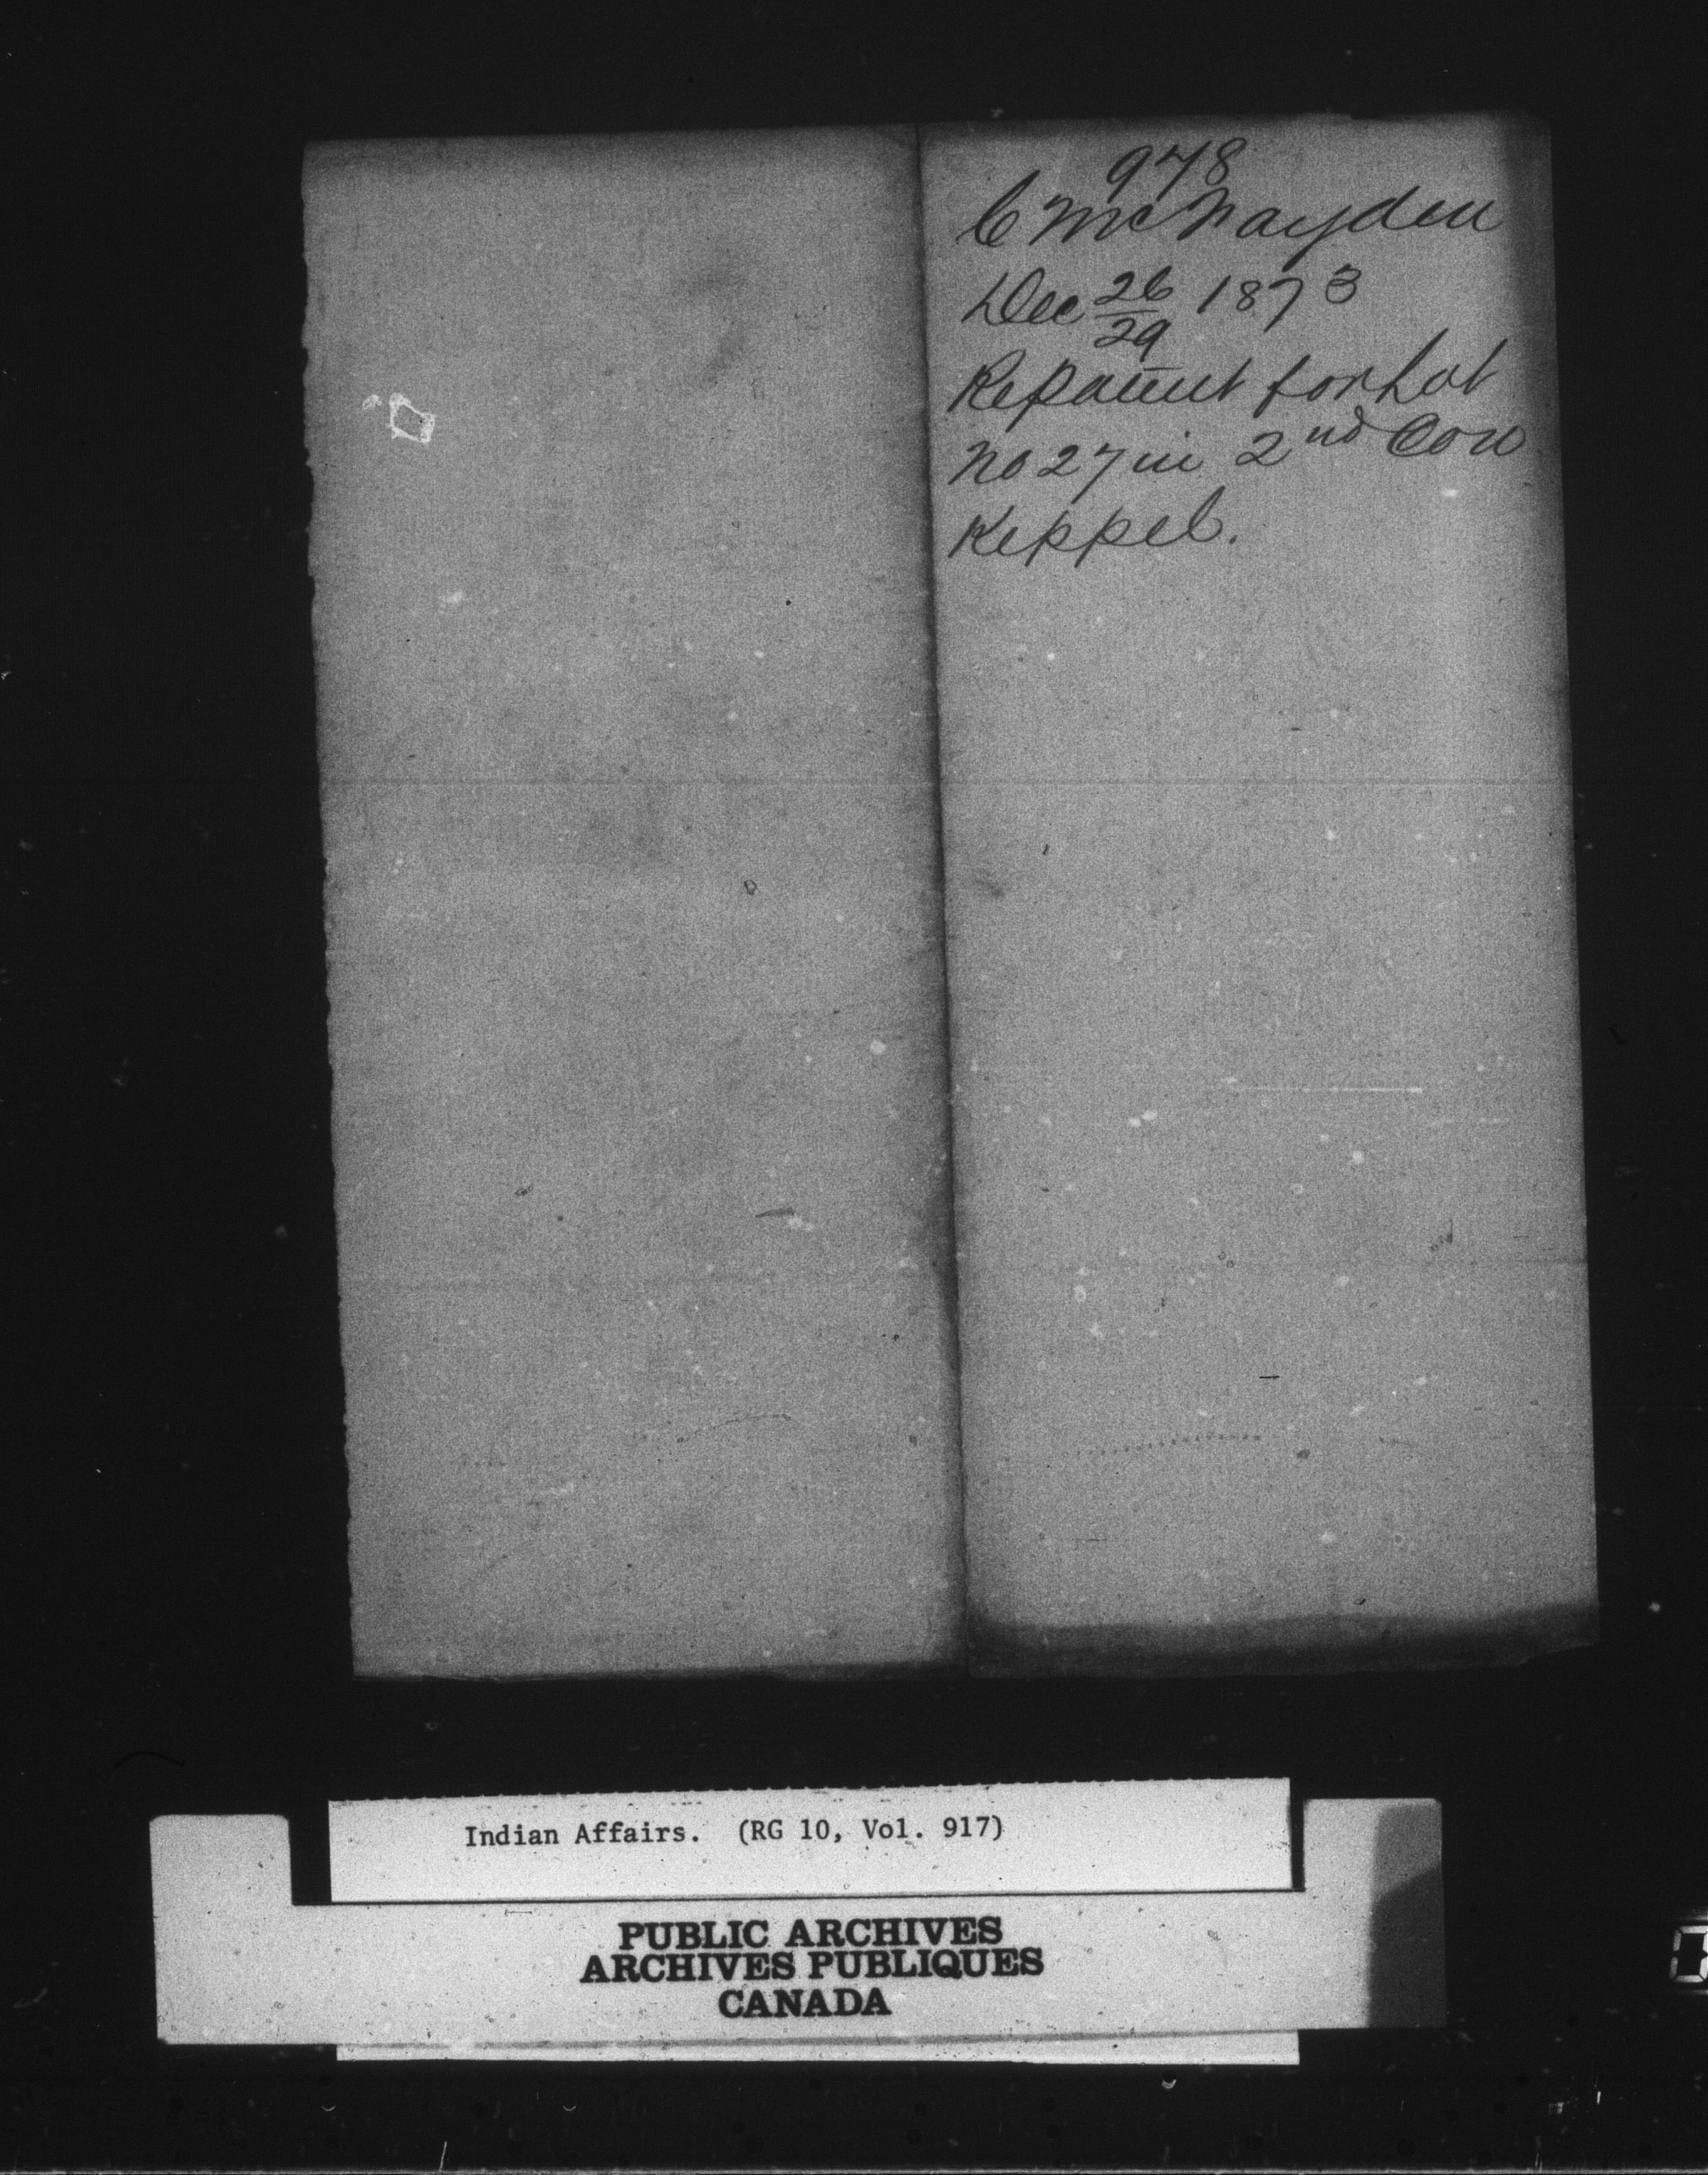 978
C McNayden
Dec 26/29 1873
Re Patent for Lot
No 27 in 2nd Con
Keppel.
Indian Affairs. (RG 10, Vol. 917)
PUBLIC ARCHIVES
ARCHIVES PUBLIQUES
CANADA